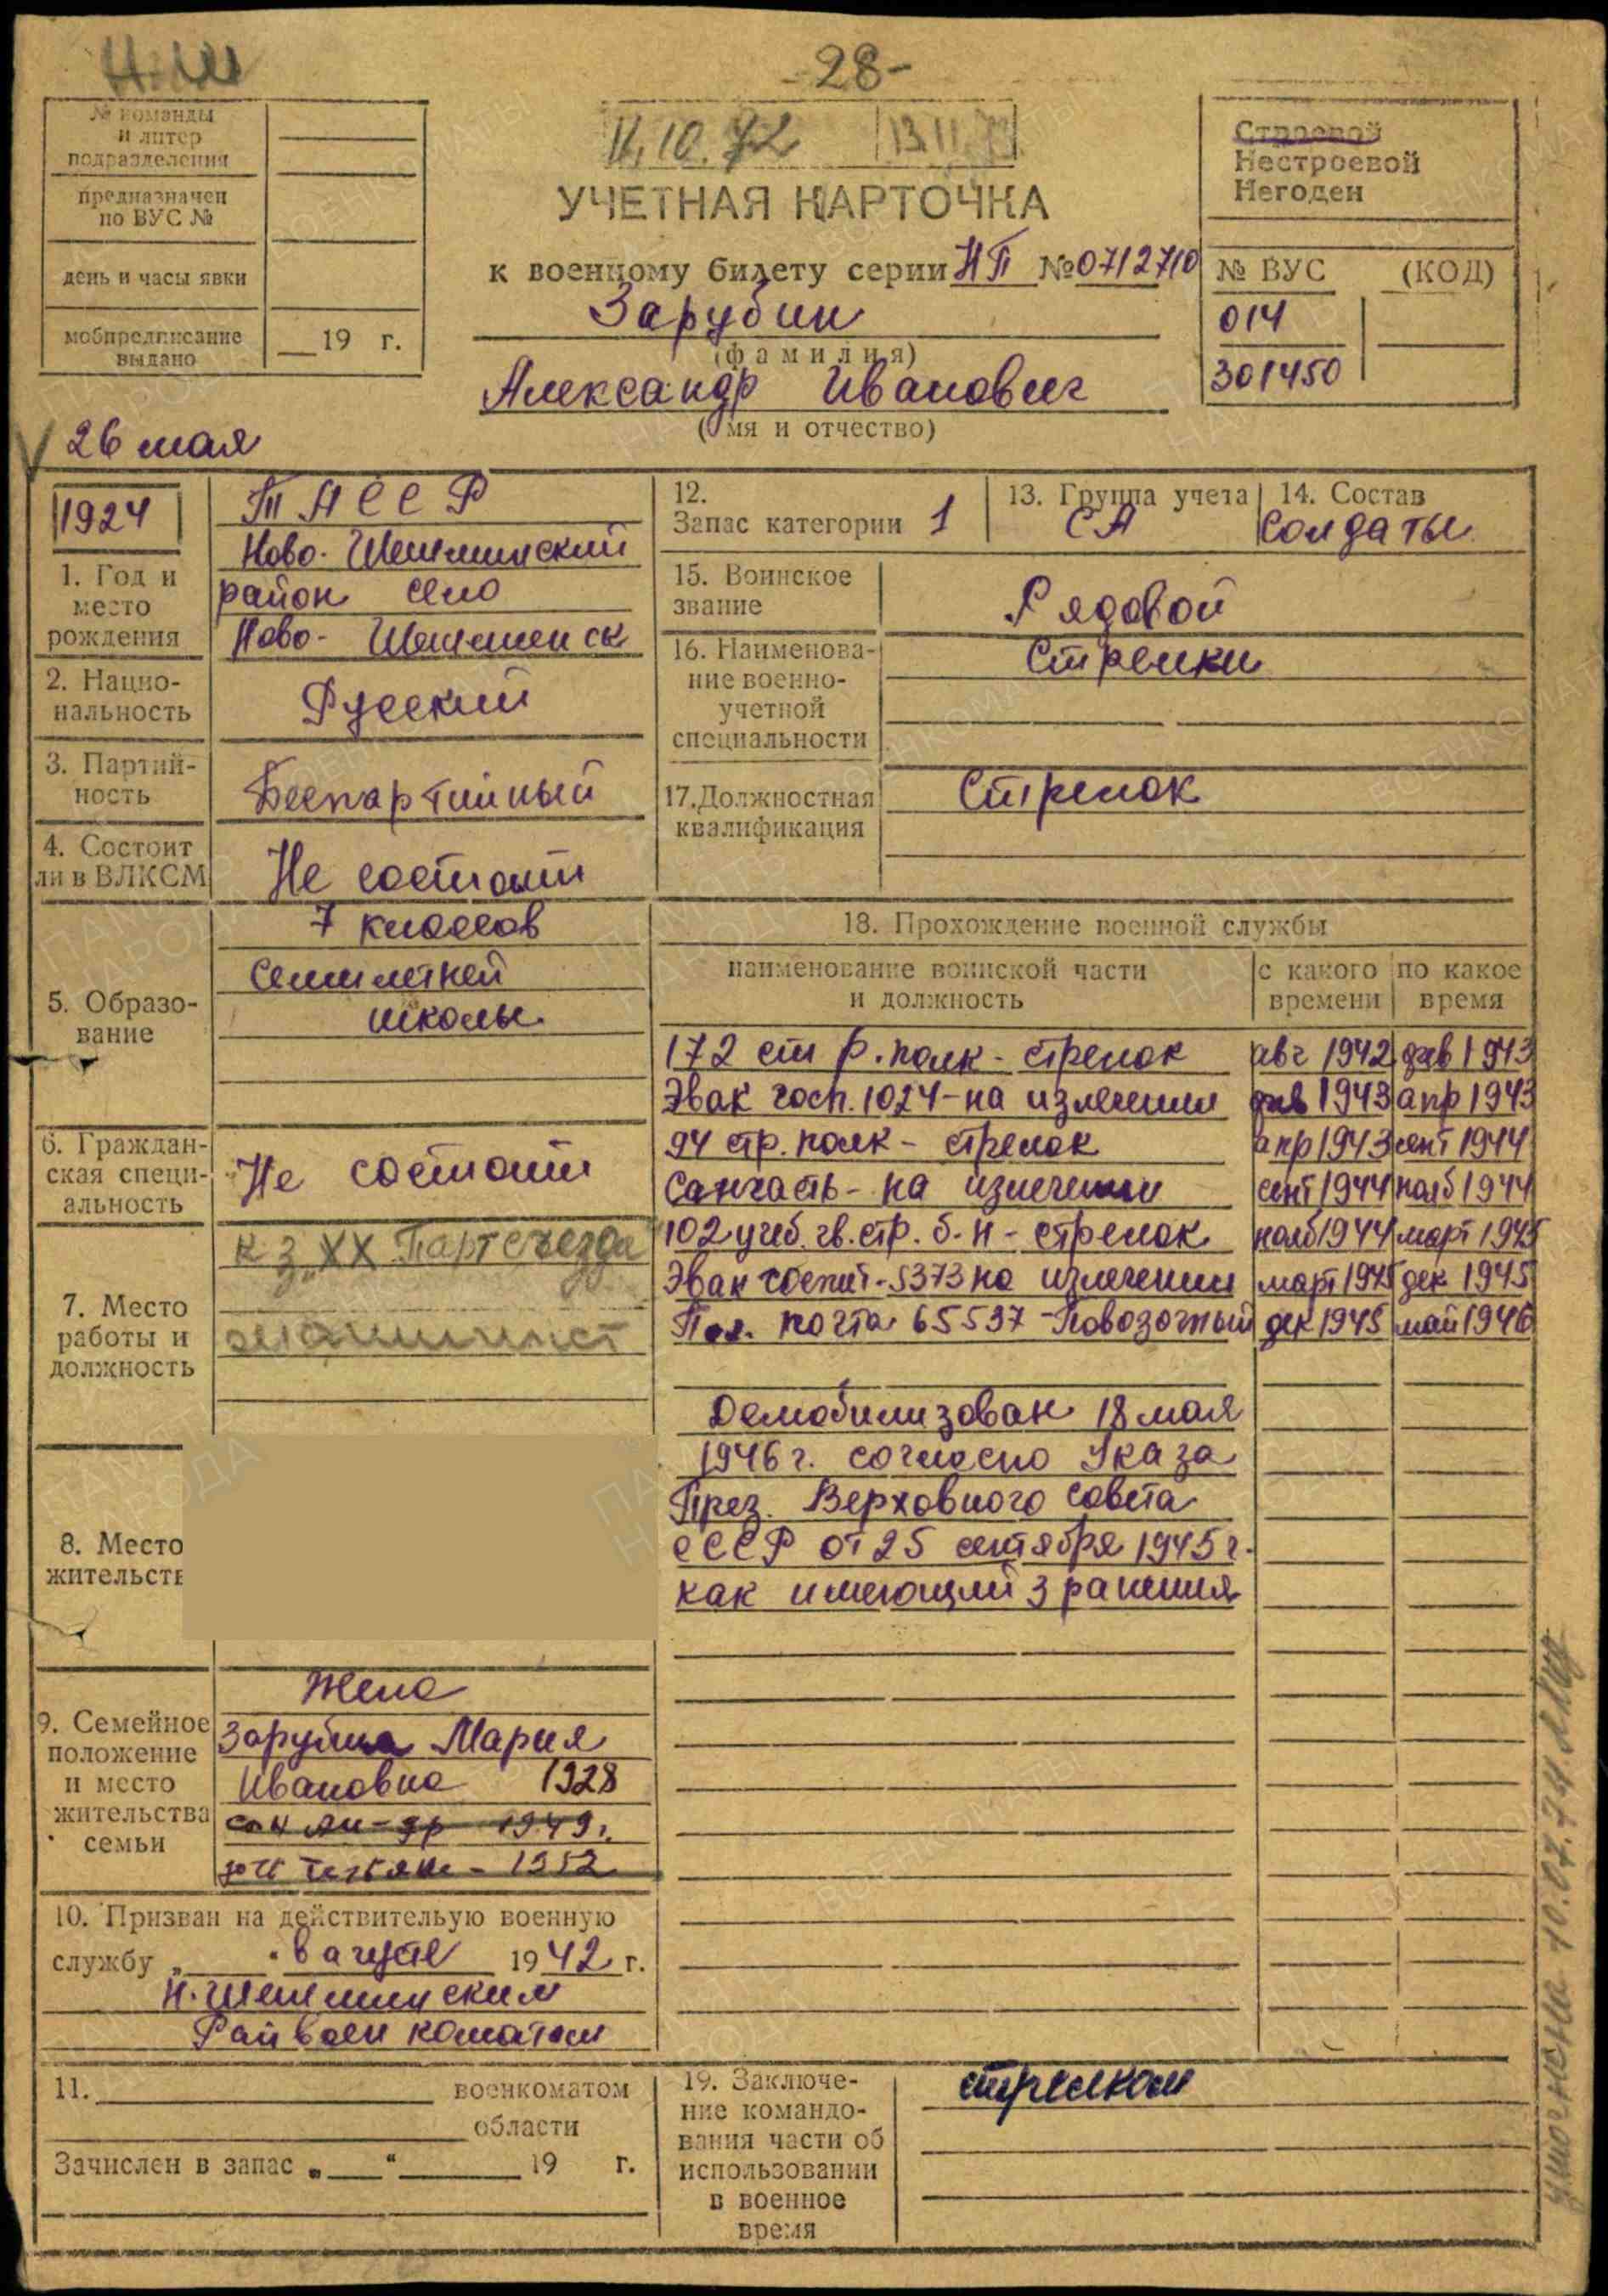 Н.Ш
-28-
№ команды
и литер
подразделения
предназначен
по ВУС №
день и часы явки
мобпредписание
выдано
19 г.
10.72
13 11
УЧЕТНАЯ КАРТОЧКА
к военному билету серии НП № 0712710
Зарубин
(фамилия)
Александр Иванович
(имя и отчество)
Строевой
Нестроевой
Негоден
№ ВУС (КОД)
014
301450
V 26 мая
1924
1. Год и
место
рождения
ТАССР
Ново-Шешминский
район село
Ново-Шешминск
2. Нацио-
нальность
Русский
3. Партий-
ность
Беспартийный
4. Состоит
ли в ВЛКСМ
Не состоит
5. Образо-
вание
7 классов
семилетней
школы
6. Граждан-
ская специ-
альность
Не состоит
7. Место
работы и
должность
к-з "XX Партсъезда"
машинист
8. Место
жительств
9. Семейное
положение
и место
жительства
семьи
Жена
Зарубина Мария
Ивановна 1928
сын Ал-др 1949г.
дочь Татьяна - 1952
10. Призван на действительую военную
службу „ " августе 1942 г.
Н.Шешминским
Райвоенкоматом
11. военкоматом
области
Зачислен в запас „ " 19 г.
12.
Запас категории 1
13. Группа учета
СА
14. Состав
солдаты
15. Воинское
звание
Рядовой
16. Наименова-
ние военно-
учетной
специальности
Стрелки
17. Должностная
квалификация
Стрелок
18. Прохождение военной службы
наименование воинской части
и должность
с какого
времени
по какое
время
172 стр. полк - стрелок авг 1942 янв 1943
Эвак госп. 1024 - на излечении янв 1943 апр 1943
94 стр. полк - стрелок апр 1943 сент 1944
Санчасть - на излечении сент 1944 нояб 1944
102 учеб. гв. стр. б-н - стрелок нояб 1944 март 1945
Эвак госпит - 5373 на излечении март 1945 дек 1945
Пол. почта 65537 - Повозочный дек 1945 май 1946
Демобилизован 18 мая
1946 г. согласно Указа
През. Верховного Совета
СССР от 25 сентября 1945 г.
как имеющий 3 ранения
19. Заключе-
ние командо-
вания части об
использовании
в военное
время
стрелком
уточнены 10.07.74